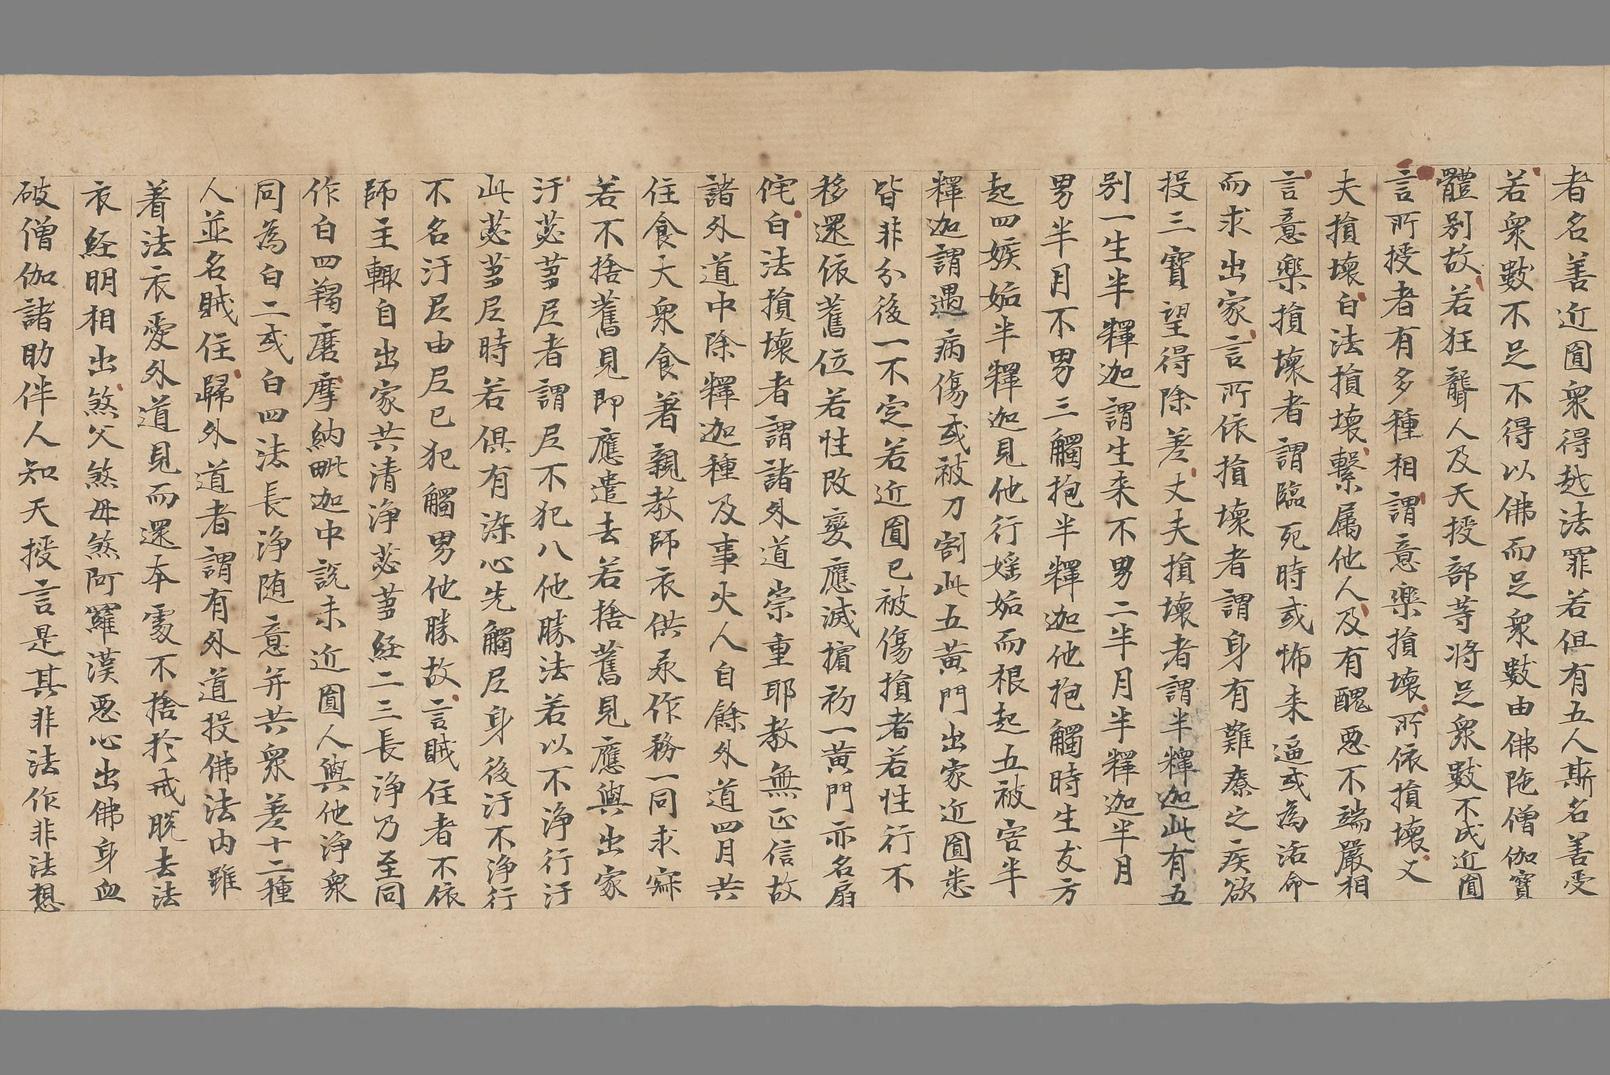 者名善近圓衆得越法罪若但有五人斯名善受
若衆數不足不得以佛而足衆數由佛陁僧伽寶
體別故若狂聾人及天授部等將足衆數不成近圓
言所授者有多種相謂意樂損壞所依損壞丈
夫損壞白法損壞繫属他人及有醜惡不端嚴相
言意樂損壞者謂臨死時或怖来逼或為活命
而求出家言所依損壞者謂身有難療之疾欲
投三寶望得除差丈夫損壞者謂半釋迦此有五
別一生半釋迦謂生来不男二半月半釋迦半月
男半月不男三觸抱半釋迦他抱觸時生支方
起四嫉妬半釋迦見他行婬妬而根起五被害半
釋迦謂遇病傷或被刀割此五黄門出家近圓悉
皆非分後一不定若近圓已被傷損者若性行不
移還依舊位若性改變應滅擯初一黄門亦名扇
侘白法損壞者謂諸外道崇重耶教無正信故
諸外道中除釋迦種及事火人自餘外道四月共
住食大衆食著親教師衣供承作務一同求寂
若不捨舊見即應遣去若捨舊見應與出家
汙苾芻尼者謂尼不犯八他勝法若以不淨行汙
此苾芻尼時若俱有染心先觸尼身後汙不淨行
不名汙尼由尼已犯觸男他勝故言賊住者不依
師主輙自出家共清淨苾芻経二三長淨乃至同
作白四羯磨摩納毗迦中說未近圓人與他淨衆
同為白二或白四法長淨隨意并共衆差十二種
人並名賊住歸外道者謂有外道投佛法内雖
著法衣愛外道見而還本處不捨於戒脫去法
衣経明相出煞父煞母煞阿羅漢惡心出佛身血
破僧伽諸助伴人知天授言是其非法作非法想